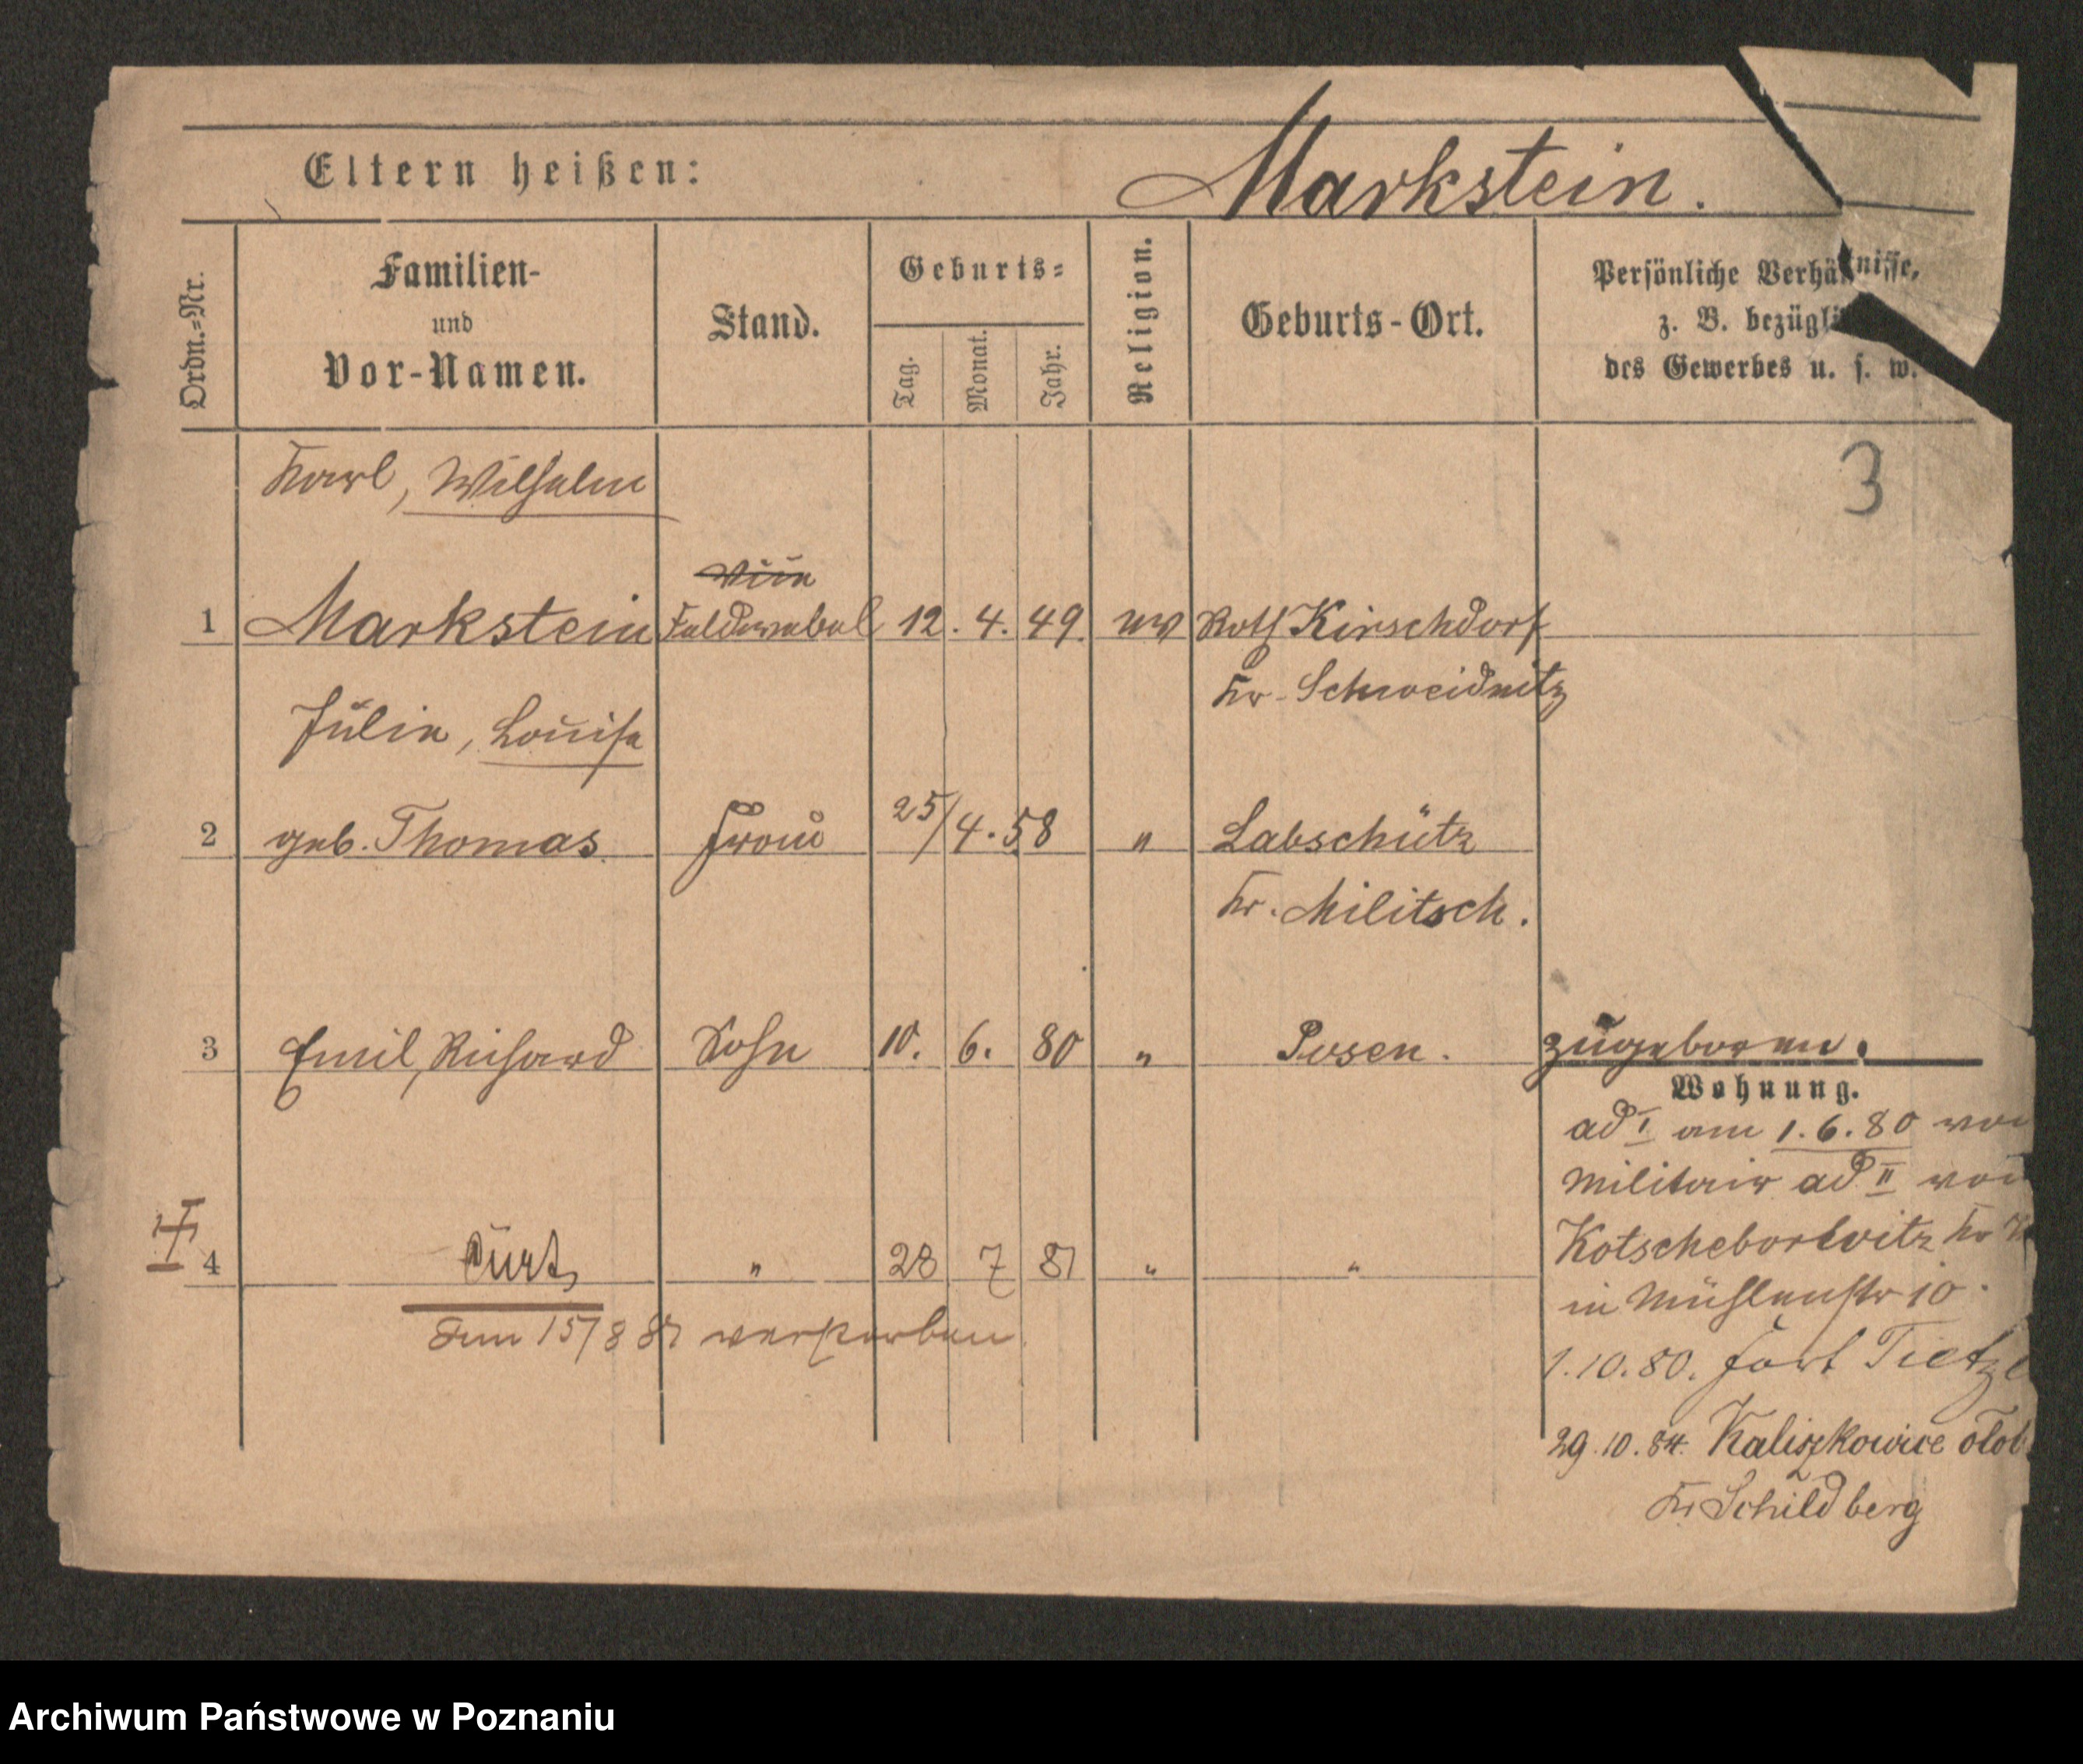 Eltern heißen: Markstein.
Ordn.=Nr.
Familien-
und
Vor-Namen.
Stand.
Geburts=
Tag.
Monat.
Jahr.
Religion.
Geburts-Ort.
Persönliche Verhältnisse,
z. B. bezügli
des Gewerbes u. s. w.
3
Karl, Wilhelm
1 Markstein Feldwebel 12. 4. 49. ev Roth Kirschdorf
Kr. Schweidnitz
Julie, Louise
2 geb. Thomas. Frau 25/4.58 " Labschütz
Kr. Militsch.
3 Emil, Richard Sohn 10. 6. 80 " Posen. zugeboren.
Wohnung.
ad I am 1.6.80 von
Militair ad II von
Kotschebortvitz Kr
in Mühlenstr 10.
4 Curt, " 28 7 81 " "
den 15/8 81 verstorben
1.10.80. Fort Tietze
29.10.84. Kaliszkowice olob
Kr. Schildberg
Archiwum Państwowe w Poznaniu